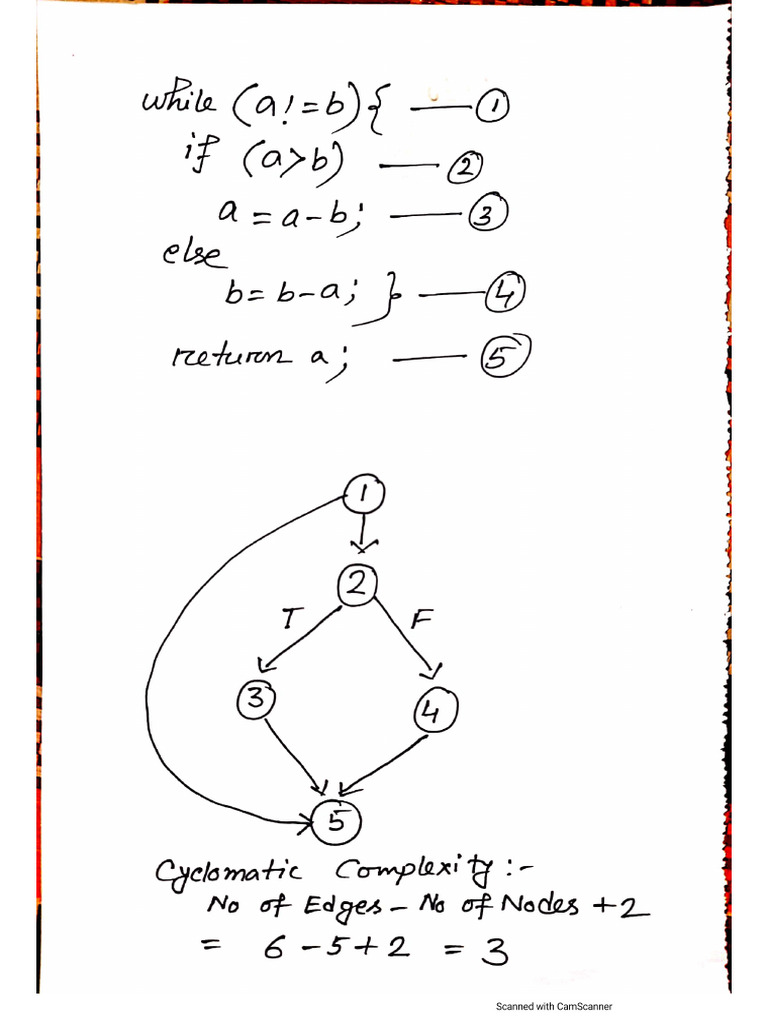 while (a!=b){ —— 1
if (a>b) —— 2
a = a-b; —— 3
else
b= b-a; } —— 4
return a; —— 5
1
2
T F
3 4
5
Cyclomatic Complexity:-
No of Edges - No of Nodes +2
= 6-5+2 = 3
Scanned with CamScanner